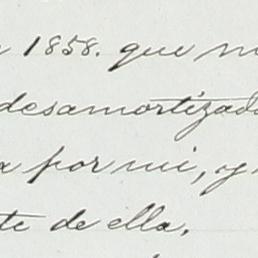 1858. que
desamortizad
por mi, y
te de ella.